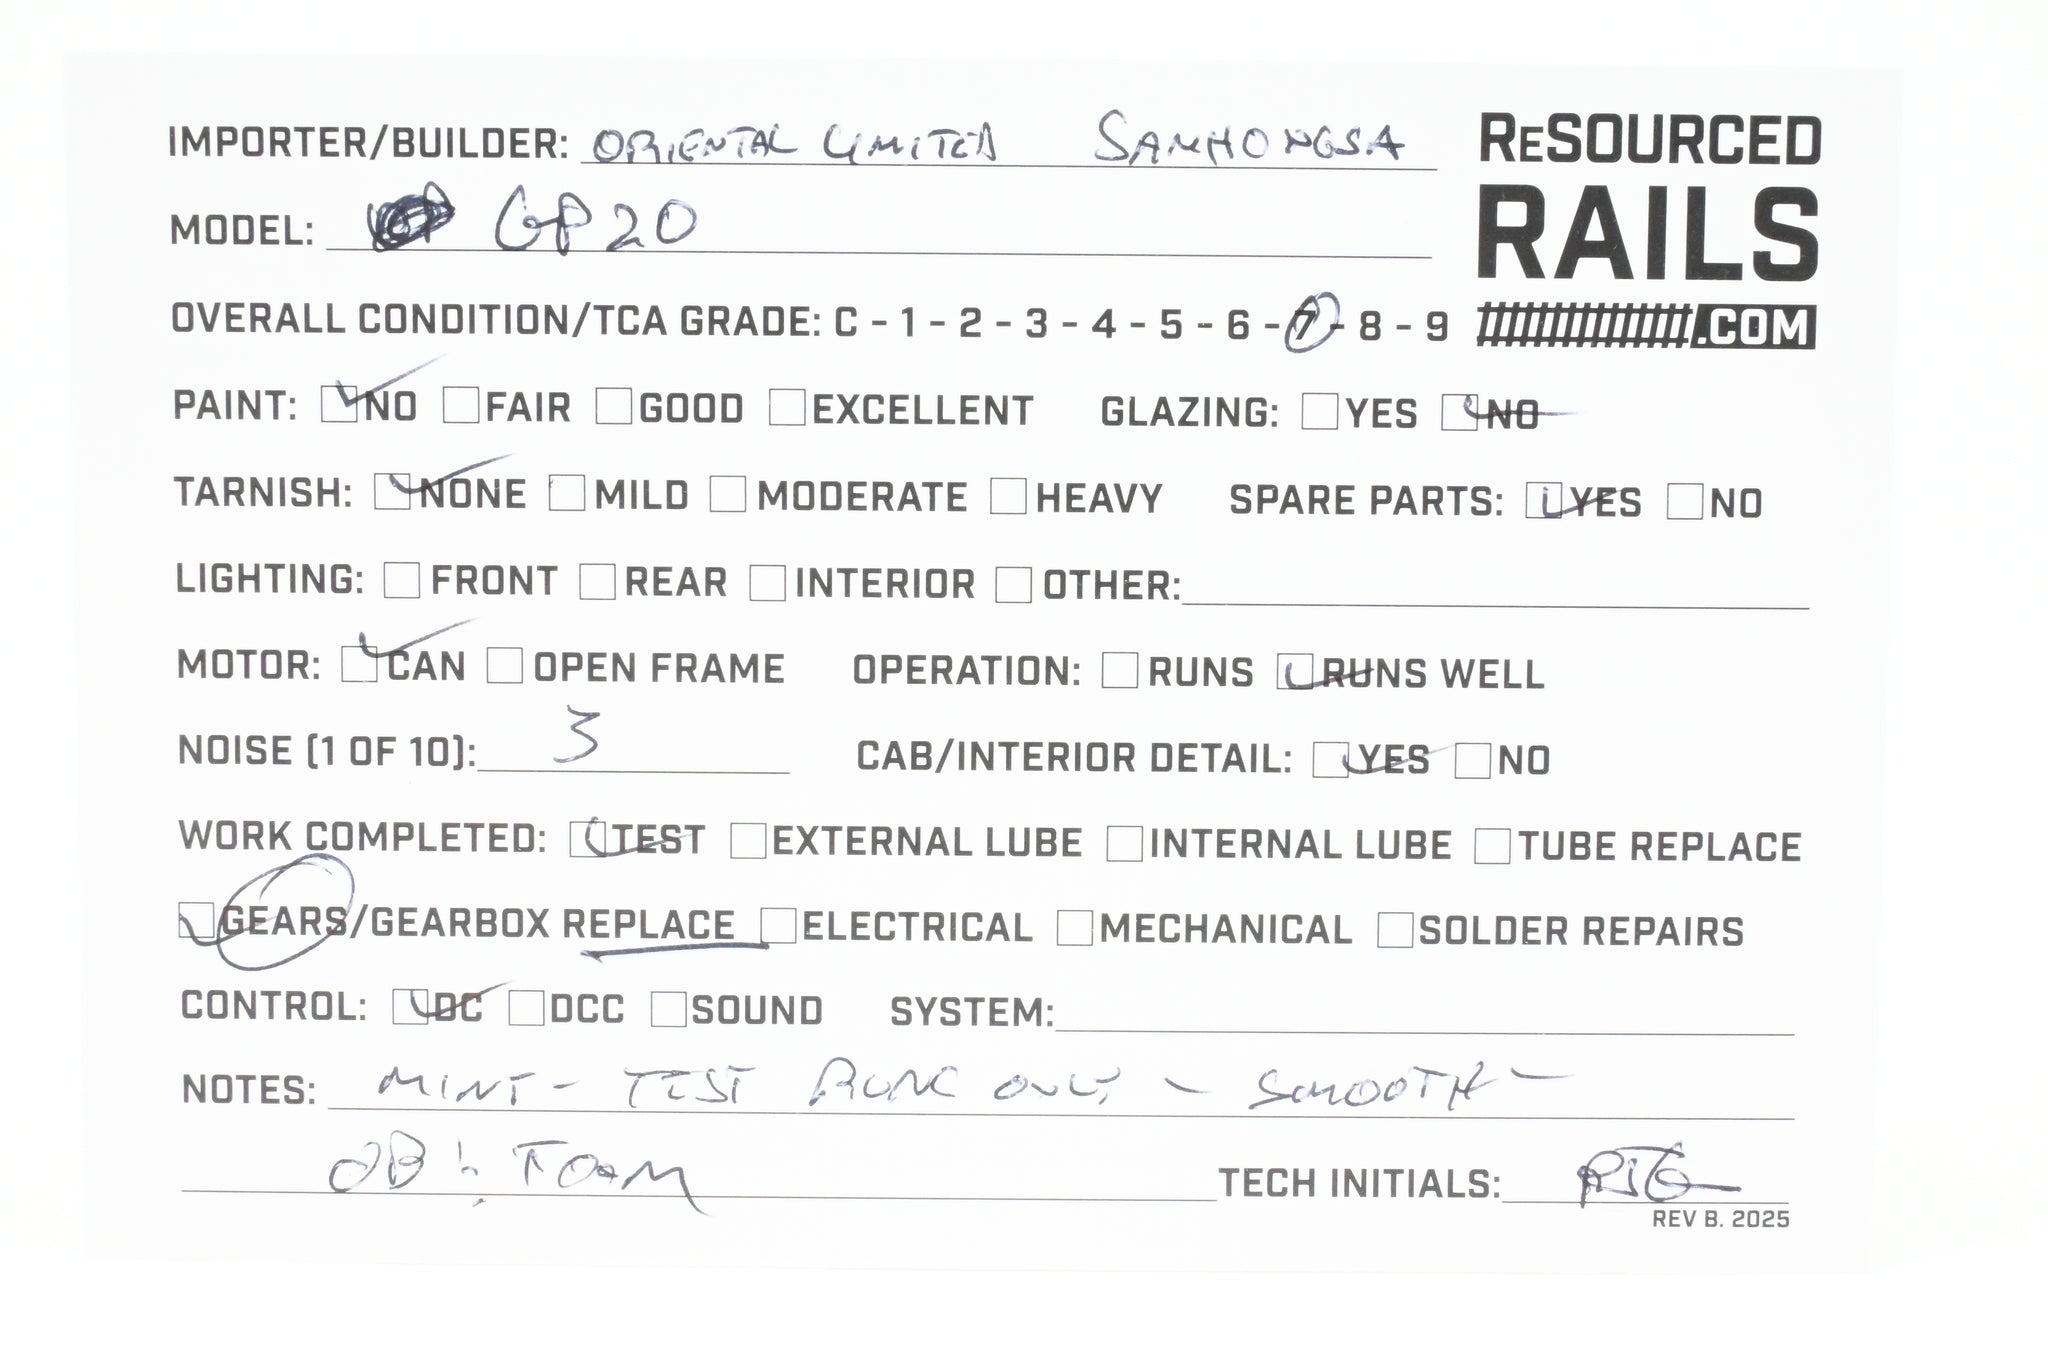 IMPORTER/BUILDER: ORIENTAL LIMITED SAMHONGSA
RESOURCED
RAILS
.COM
MODEL: GP20
OVERALL CONDITION/TCA GRADE: C - 1 - 2 - 3 - 4 - 5 - 6 - 7 - 8 - 9
PAINT: NO FAIR GOOD EXCELLENT GLAZING: YES NO
TARNISH: NONE MILD MODERATE HEAVY SPARE PARTS: YES NO
LIGHTING: FRONT REAR INTERIOR OTHER:
MOTOR: CAN OPEN FRAME OPERATION: RUNS RUNS WELL
NOISE (1 OF 10): 3 CAB/INTERIOR DETAIL: YES NO
WORK COMPLETED: TEST EXTERNAL LUBE INTERNAL LUBE TUBE REPLACE
GEARS/GEARBOX REPLACE ELECTRICAL MECHANICAL SOLDER REPAIRS
CONTROL: DC DCC SOUND SYSTEM:
NOTES: MINT - TEST RUN ONLY - SMOOTH -
OB & FOAM TECH INITIALS: RJG
REV B. 2025